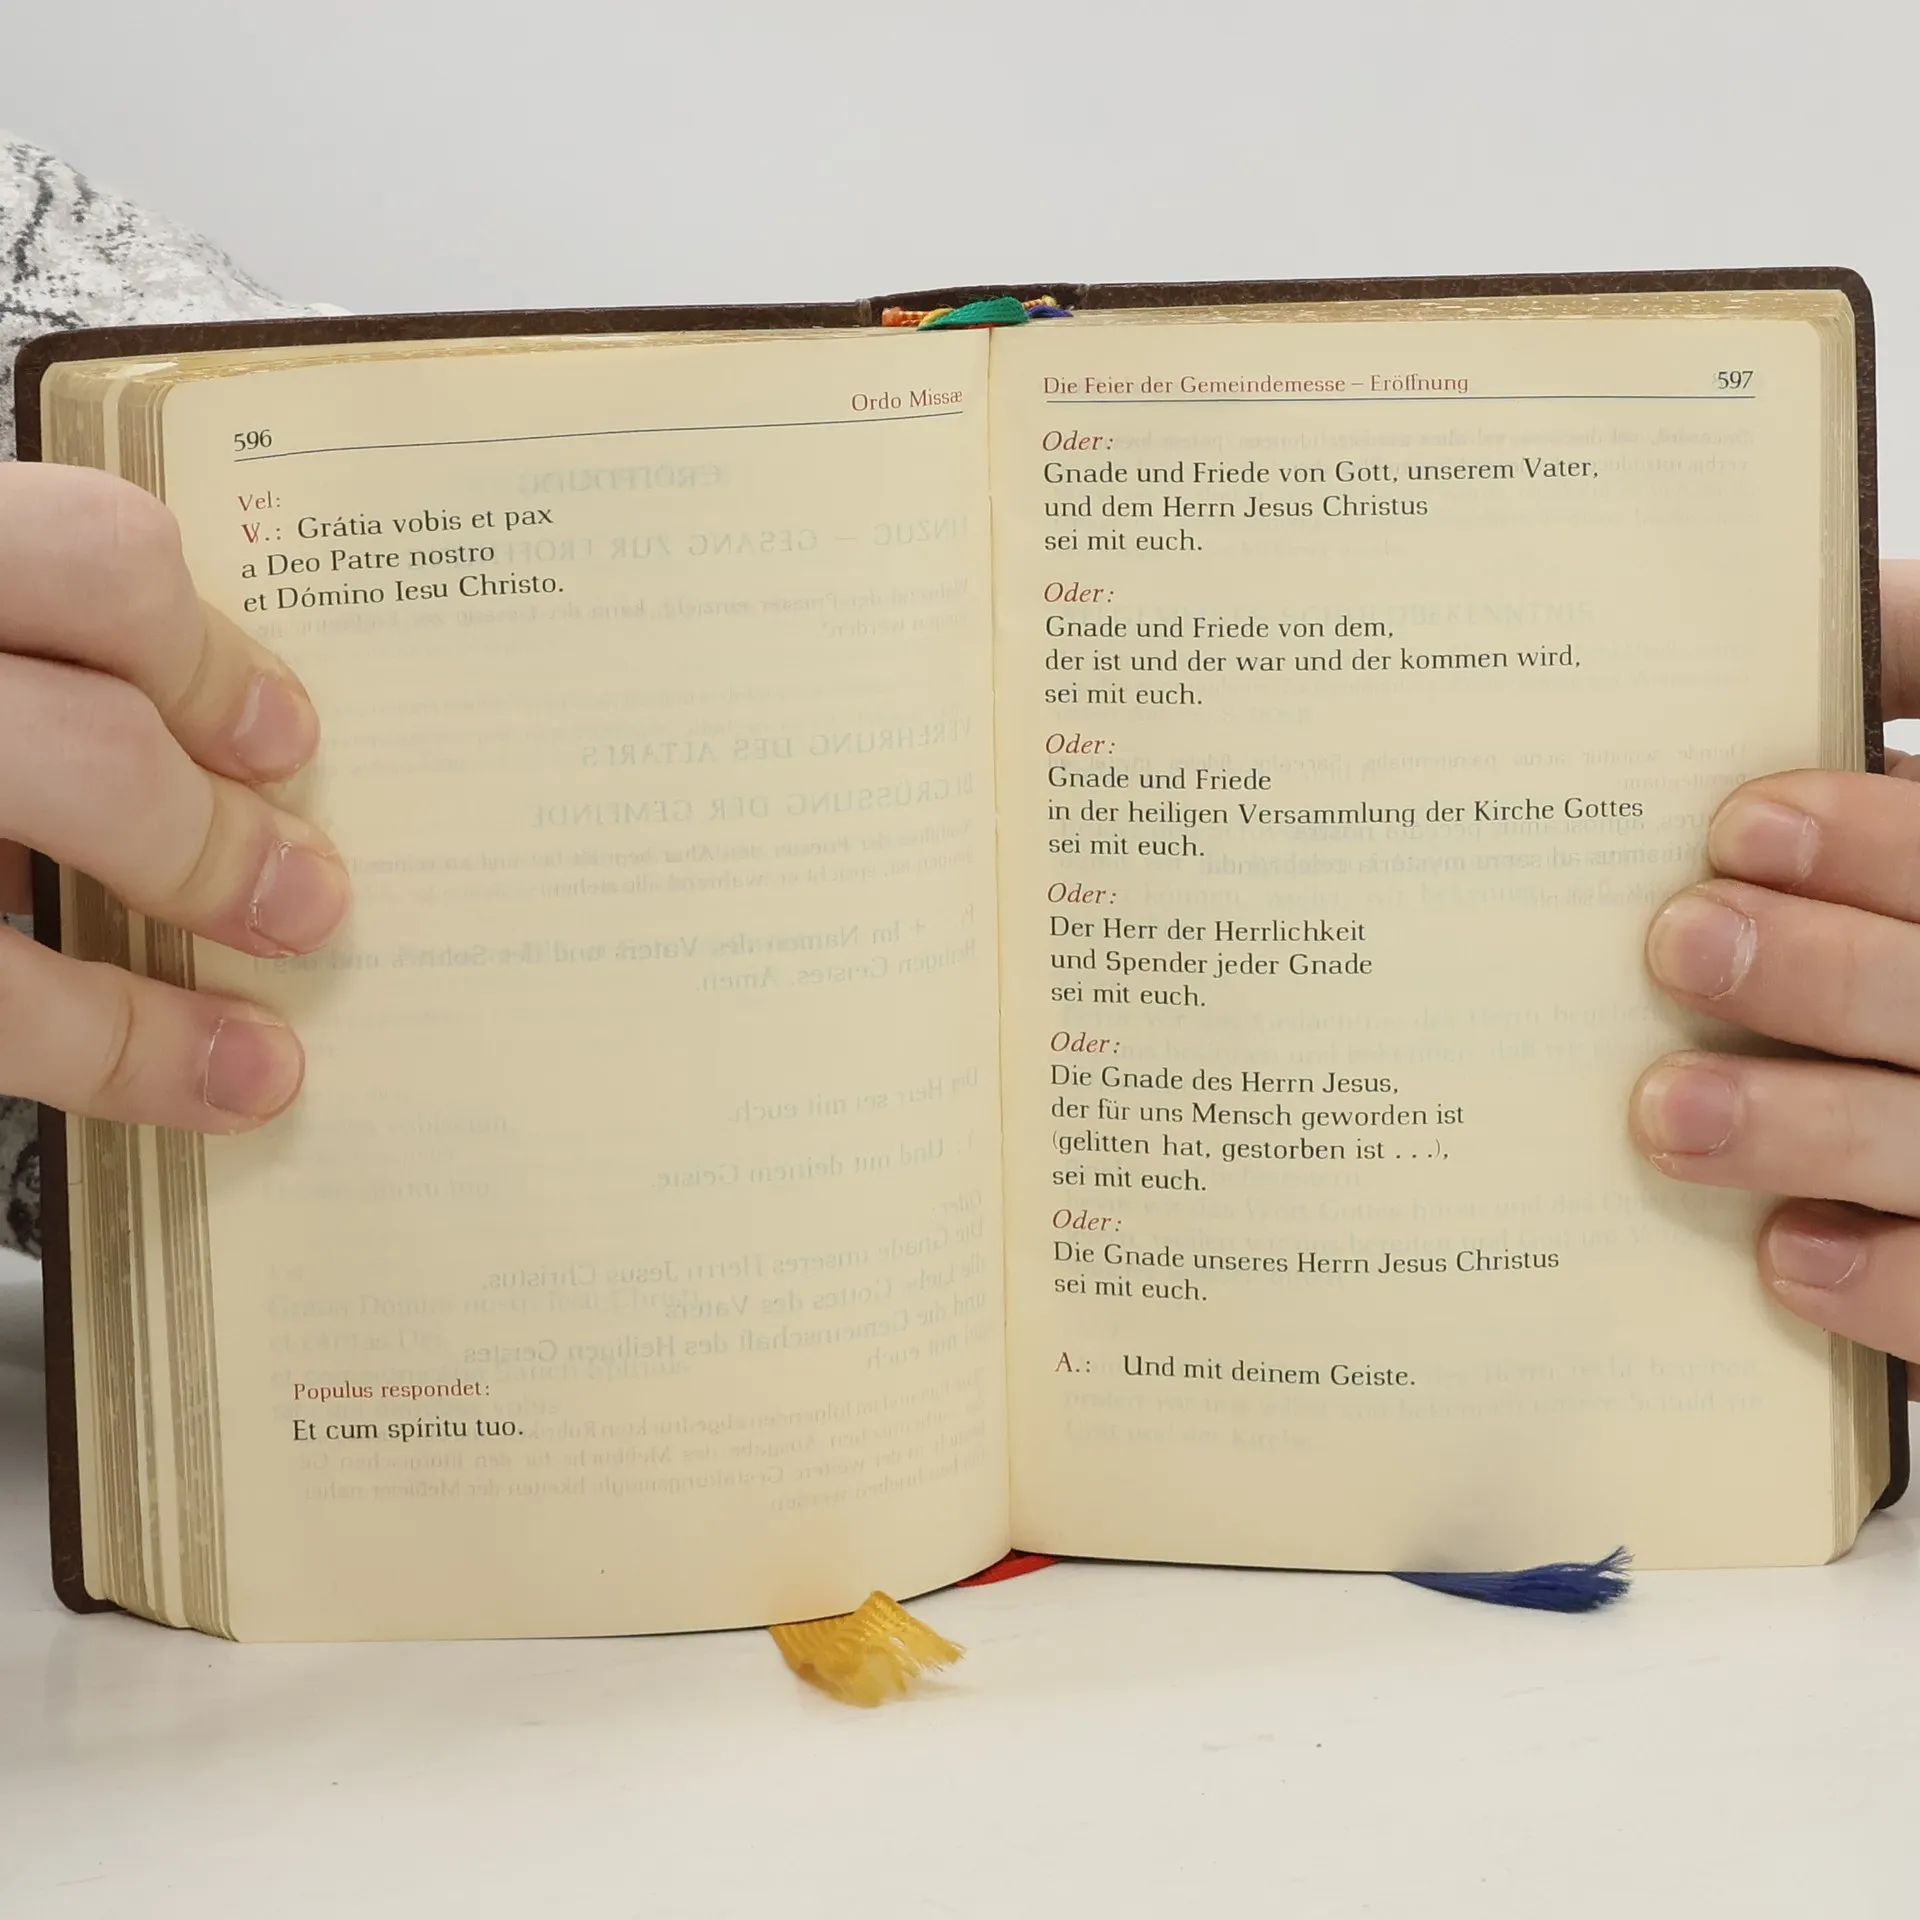 596
Ordo Missæ
Vel:
V.: Grátia vobis et pax
a Deo Patre nostro
et Dómino Iesu Christo.
Populus respondet:
Et cum spíritu tuo.
Die Feier der Gemeindemesse – Eröffnung
597
Oder:
Gnade und Friede von Gott, unserem Vater,
und dem Herrn Jesus Christus
sei mit euch.
Oder:
Gnade und Friede von dem,
der ist und der war und der kommen wird,
sei mit euch.
Oder:
Gnade und Friede
in der heiligen Versammlung der Kirche Gottes
sei mit euch.
Oder:
Der Herr der Herrlichkeit
und Spender jeder Gnade
sei mit euch.
Oder:
Die Gnade des Herrn Jesus,
der für uns Mensch geworden ist
(gelitten hat, gestorben ist . . .),
sei mit euch.
Oder:
Die Gnade unseres Herrn Jesus Christus
sei mit euch.
A.: Und mit deinem Geiste.